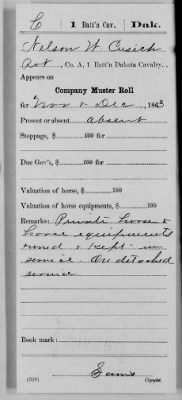 C 1 Batt'n Cav. Dak.
Nelson W. Cusick
Pvt, Co. A, 1 Batt'n Dakota Cavalry.
Appears on
Company Muster Roll
for Nov & Dec, 1863
Present or absent absent
Stoppage, $ 100 for
Due Gov't, $ 100 for
Valuation of horse, $ 100
Valuation of horse equipments, $ 100
Remarks: Private horse &
horse equipments
owned & kept in
service. On detached
service
Book mark:
(358)
Copyist.